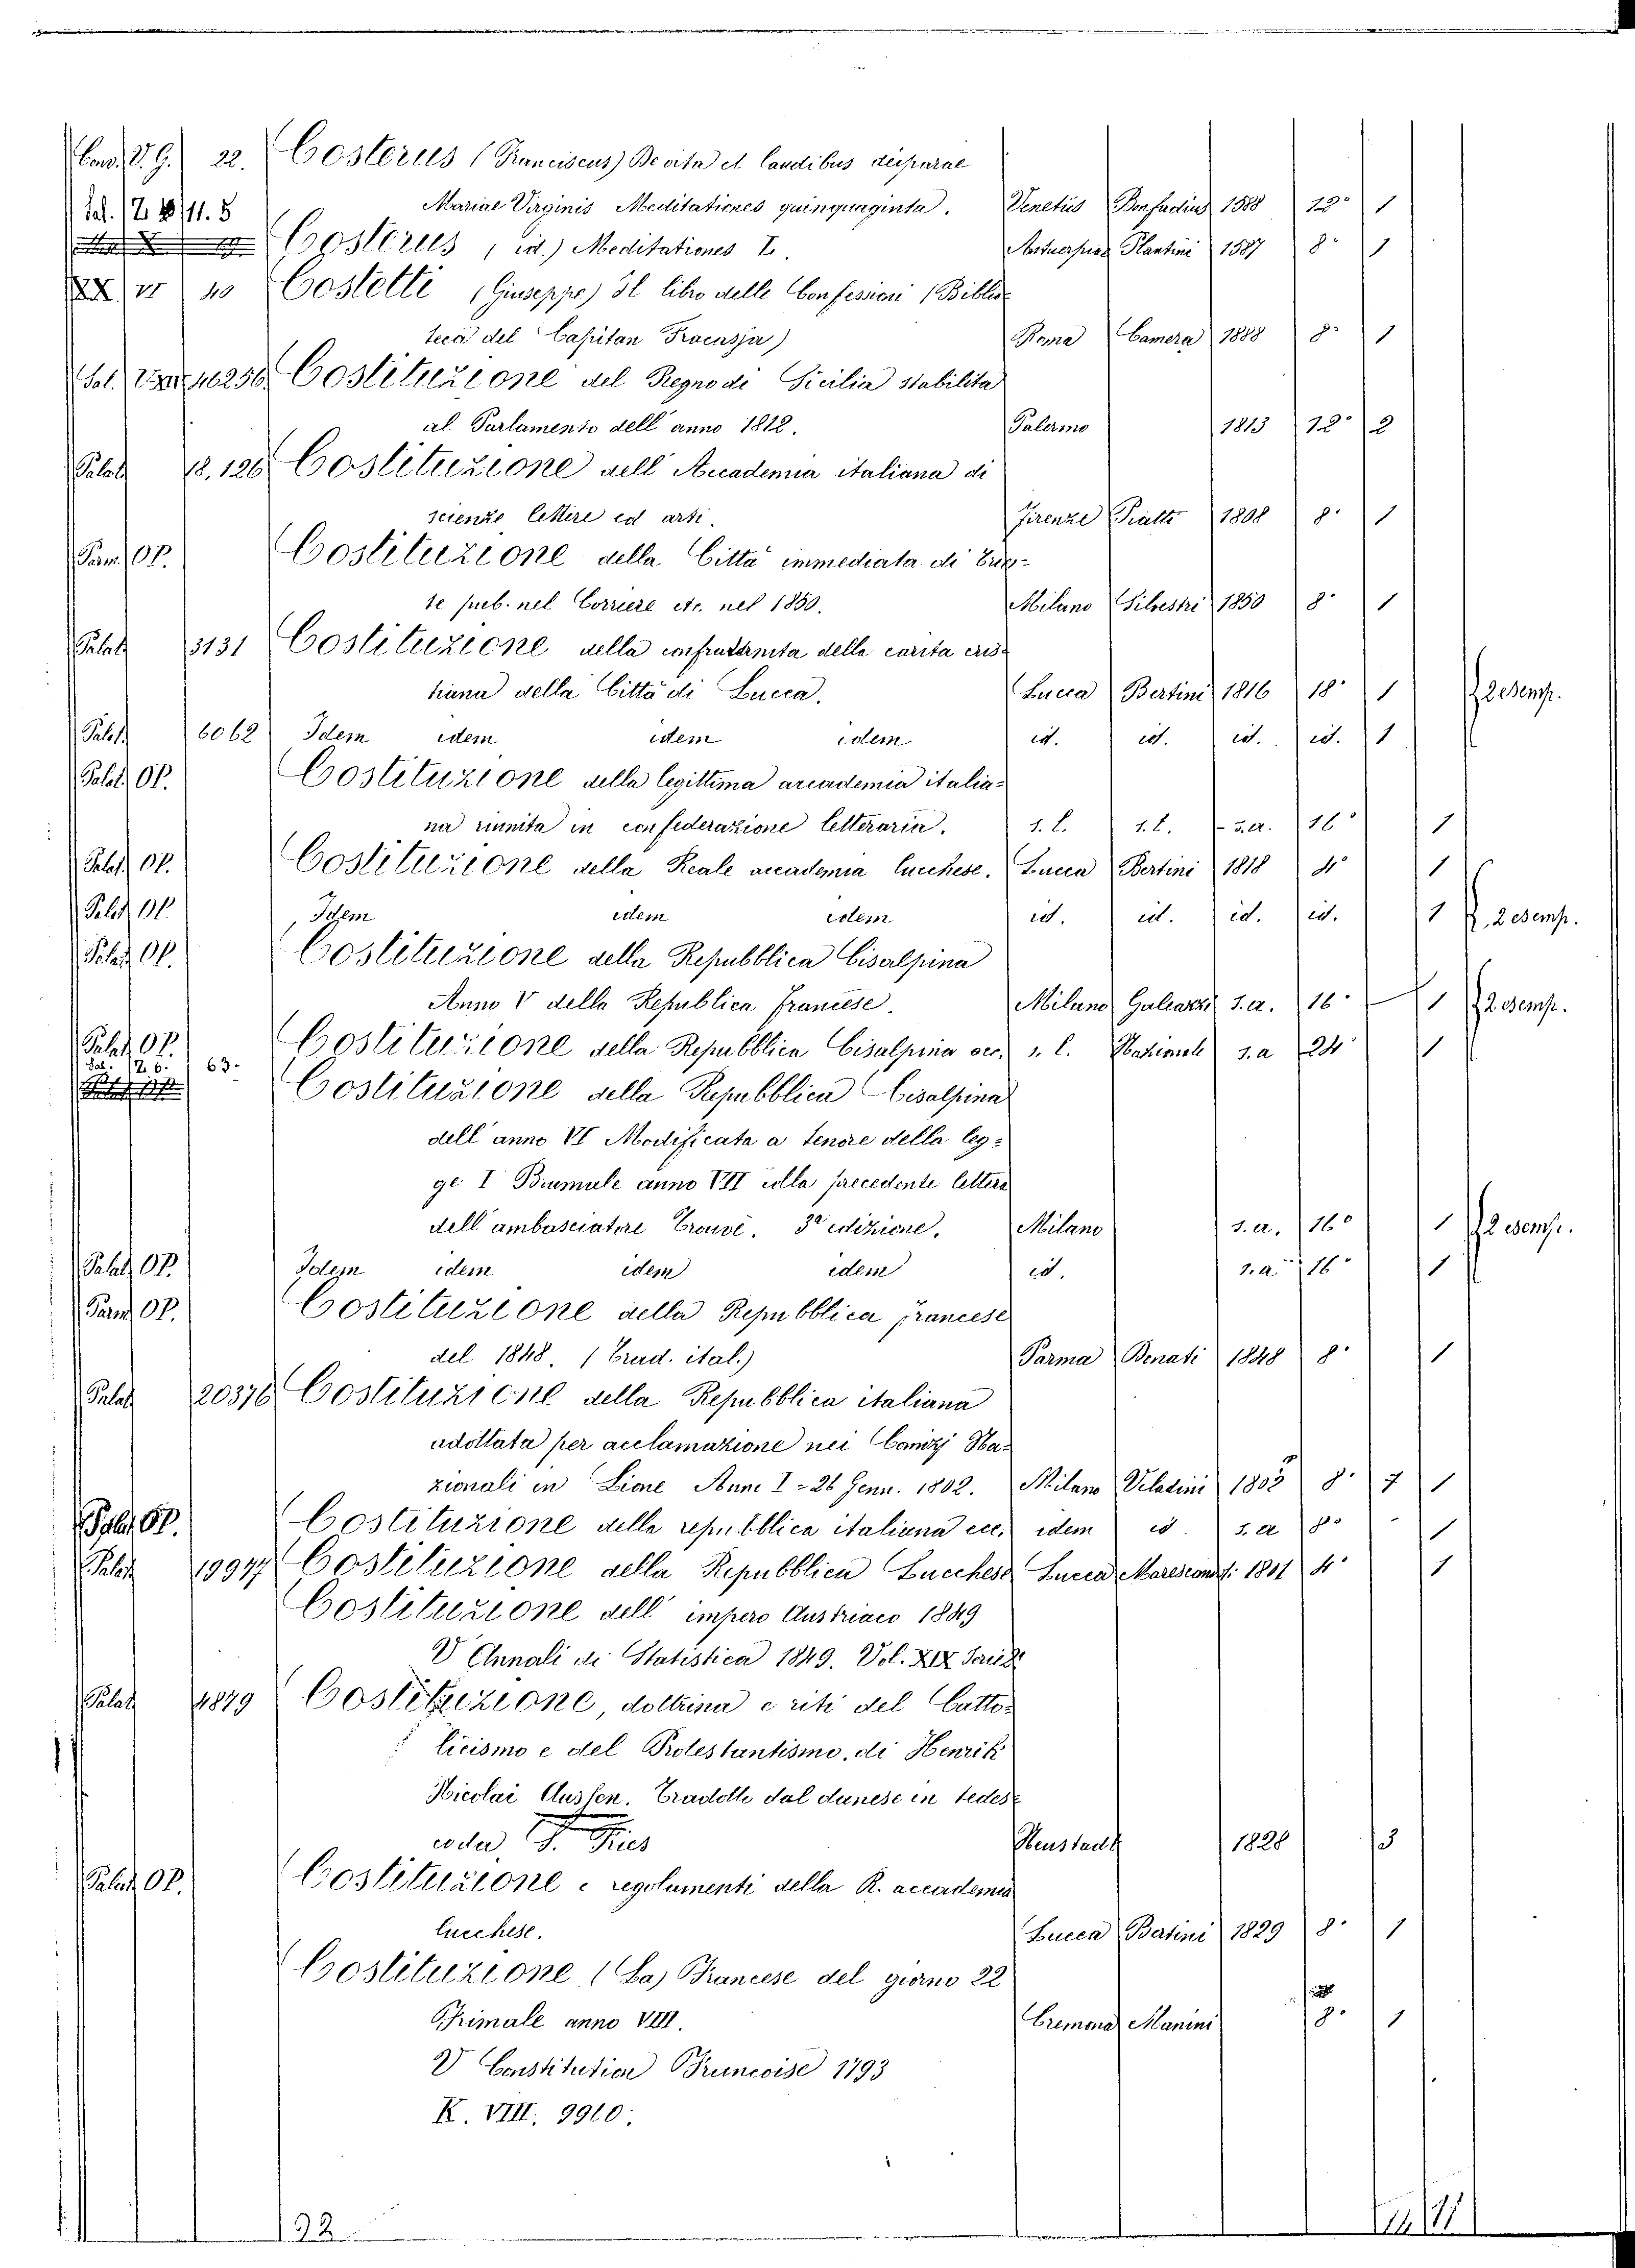 Conv. V. G. 22. Costerus (Franciscus) De vita et laudibus deiparae
Sal. Z. 11. 5 Mariae Virginis Meditationes quinquaginta. Venetiis Bonfadius 1588 12° 1
Costerus (id.) Meditationes Antuerpiae Plantini 1587 8° 1
XX VI 40 Costetti (Giuseppe) Il libro delle Confessioni (Biblio-
teca del Capitan Fracassa) Roma Camera 1888 8° 1
Sal. 46256 Costituzione del Regno di Sicilia stabilita
al Parlamento dell'anno 1812. Palermo 1813 12° 2
Palat. 18.126 Costituzione dell'Accademia italiana di
scienze lettere ed arti. Firenze Piatti 1808 8° 1
Parm. OP. Costituzione della Città immediata di Trie-
te pub. nel Corriere etc. nel 1850. Milano Silvestri 1850 8° 1
Palat. 3131 Costituzione della confraternita della carità cris-
tiana della Città di Lucca. Lucca Bertini 1816 18° 1 2 esemp.
Palat. 6062 Idem idem idem idem id. id. id. id. 1
Palat. OP. Costituzione della legittima accademia italia-
na riunita in confederazione letteraria. s. l. s. l. s. a. 16° 1
Palat. OP. Costituzione della Reale accademia lucchese. Lucca Bertini 1818 4° 1
Palat. OP. Idem idem idem id. id. id. id. 1 2 esemp.
Palat. OP. Costituzione della Repubblica Cisalpina
Anno V della Republica francese. Milano Galeazzi s. a. 16° 1 2 esemp.
Palat. OP. Costituzione della Repubblica Cisalpina ecc. s. l. Nazionale s. a 24° 1
Sal. 26. 63. Costituzione della Repubblica Cisalpina
dell'anno VI Modificata a tenore della leg-
ge I Brumale anno VII colla precedente lettera
dell'ambasciatore Trouvé. 3ª edizione. Milano s. a. 16° 1 2 esemp.
Palat. OP. Idem idem idem idem id. s. a 16° 1
Parm. OP. Costituzione della Repubblica francese
del 1848. (Trad. ital.) Parma Donati 1848 8° 1
Palat. 20376 Costituzione della Repubblica italiana
adottata per acclamazione nei Comizj Na-
zionali in Lione Anno I - 26 Genn. 1802. Milano Veladini 1802 8° 1
Palat. OP. Costituzione della repubblica italiana ecc. idem id. s. a 8° 1
Palat. 19977 Costituzione della Repubblica Lucchese Lucca Marescand. 1801 4° 1
Costituzione dell'impero Austriaco 1849
V Annali di Statistica 1849. Vol. XIX Serie 2ª
Palat. 4879 Costituzione, dottrina e riti del Catto-
licismo e del Protestantismo. di Henrik
Nicolai Aussen. Tradotte dal danese in tedes-
co da F. Fries Neustadt 1828 3
Palat. OP. Costituzione e regolamenti della R. accademia
lucchese. Lucca Bertini 1829 8° 1
Costituzione (La) Francese del giorno 22
Frimale anno VIII. Cremona Manini 8° 1
V Constitution Francoise 1793
K. VIII. 9910.
92